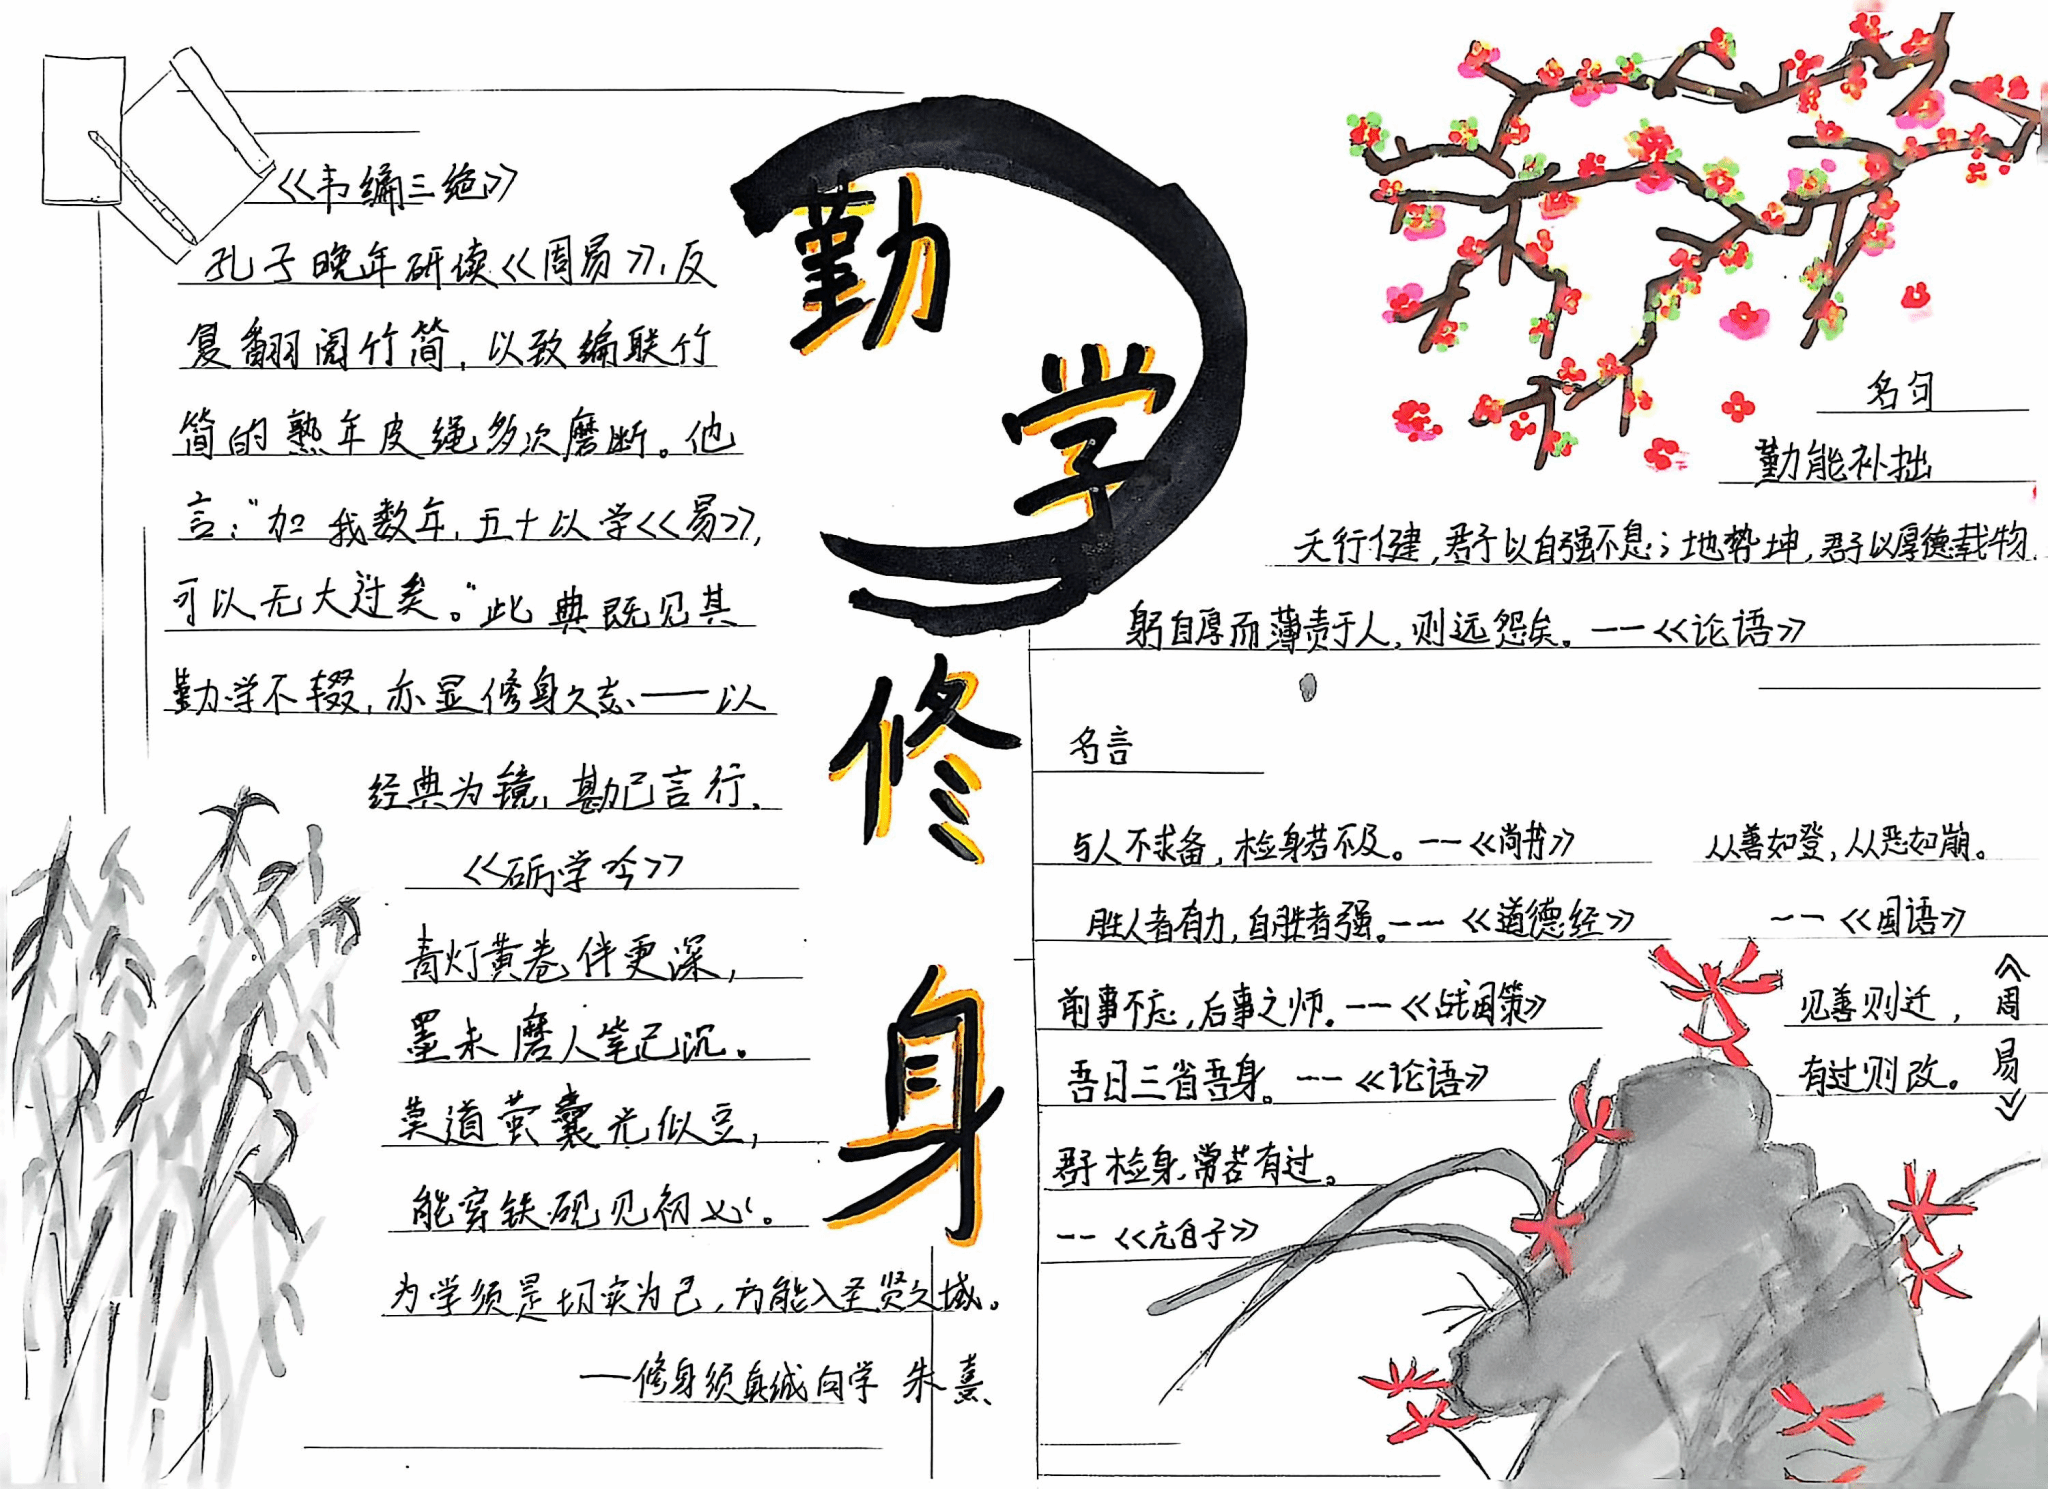 《韦编三绝》
孔子晚年研读《周易》，反
复翻阅竹简，以致编联竹
简的熟年皮绳多次磨断。他
言：“加我数年，五十以学《易》，
可以无大过矣。”此典既见其
勤学不辍，亦显修身之志——以
经典为镜，勘己言行。
《砺学吟》
青灯黄卷伴更深，
墨未磨人笔已沉。
莫道萤囊光似豆，
能穿铁砚见初心。
为学须是切实为己，方能入圣贤之域。
—修身须真诚向学 朱熹
勤
学
修
身
名句
勤能补拙
天行健，君子以自强不息；地势坤，君子以厚德载物
躬自厚而薄责于人，则远怨矣。——《论语》
名言
与人不求备，检身若不及。——《尚书》
胜人者有力，自胜者强。——《道德经》
前事不忘，后事之师。——《战国策》
吾日三省吾身。——《论语》
君子检身，常若有过。
——《亢仓子》
从善如登，从恶如崩。
——《国语》
见善则迁，
有过则改。
《周易》